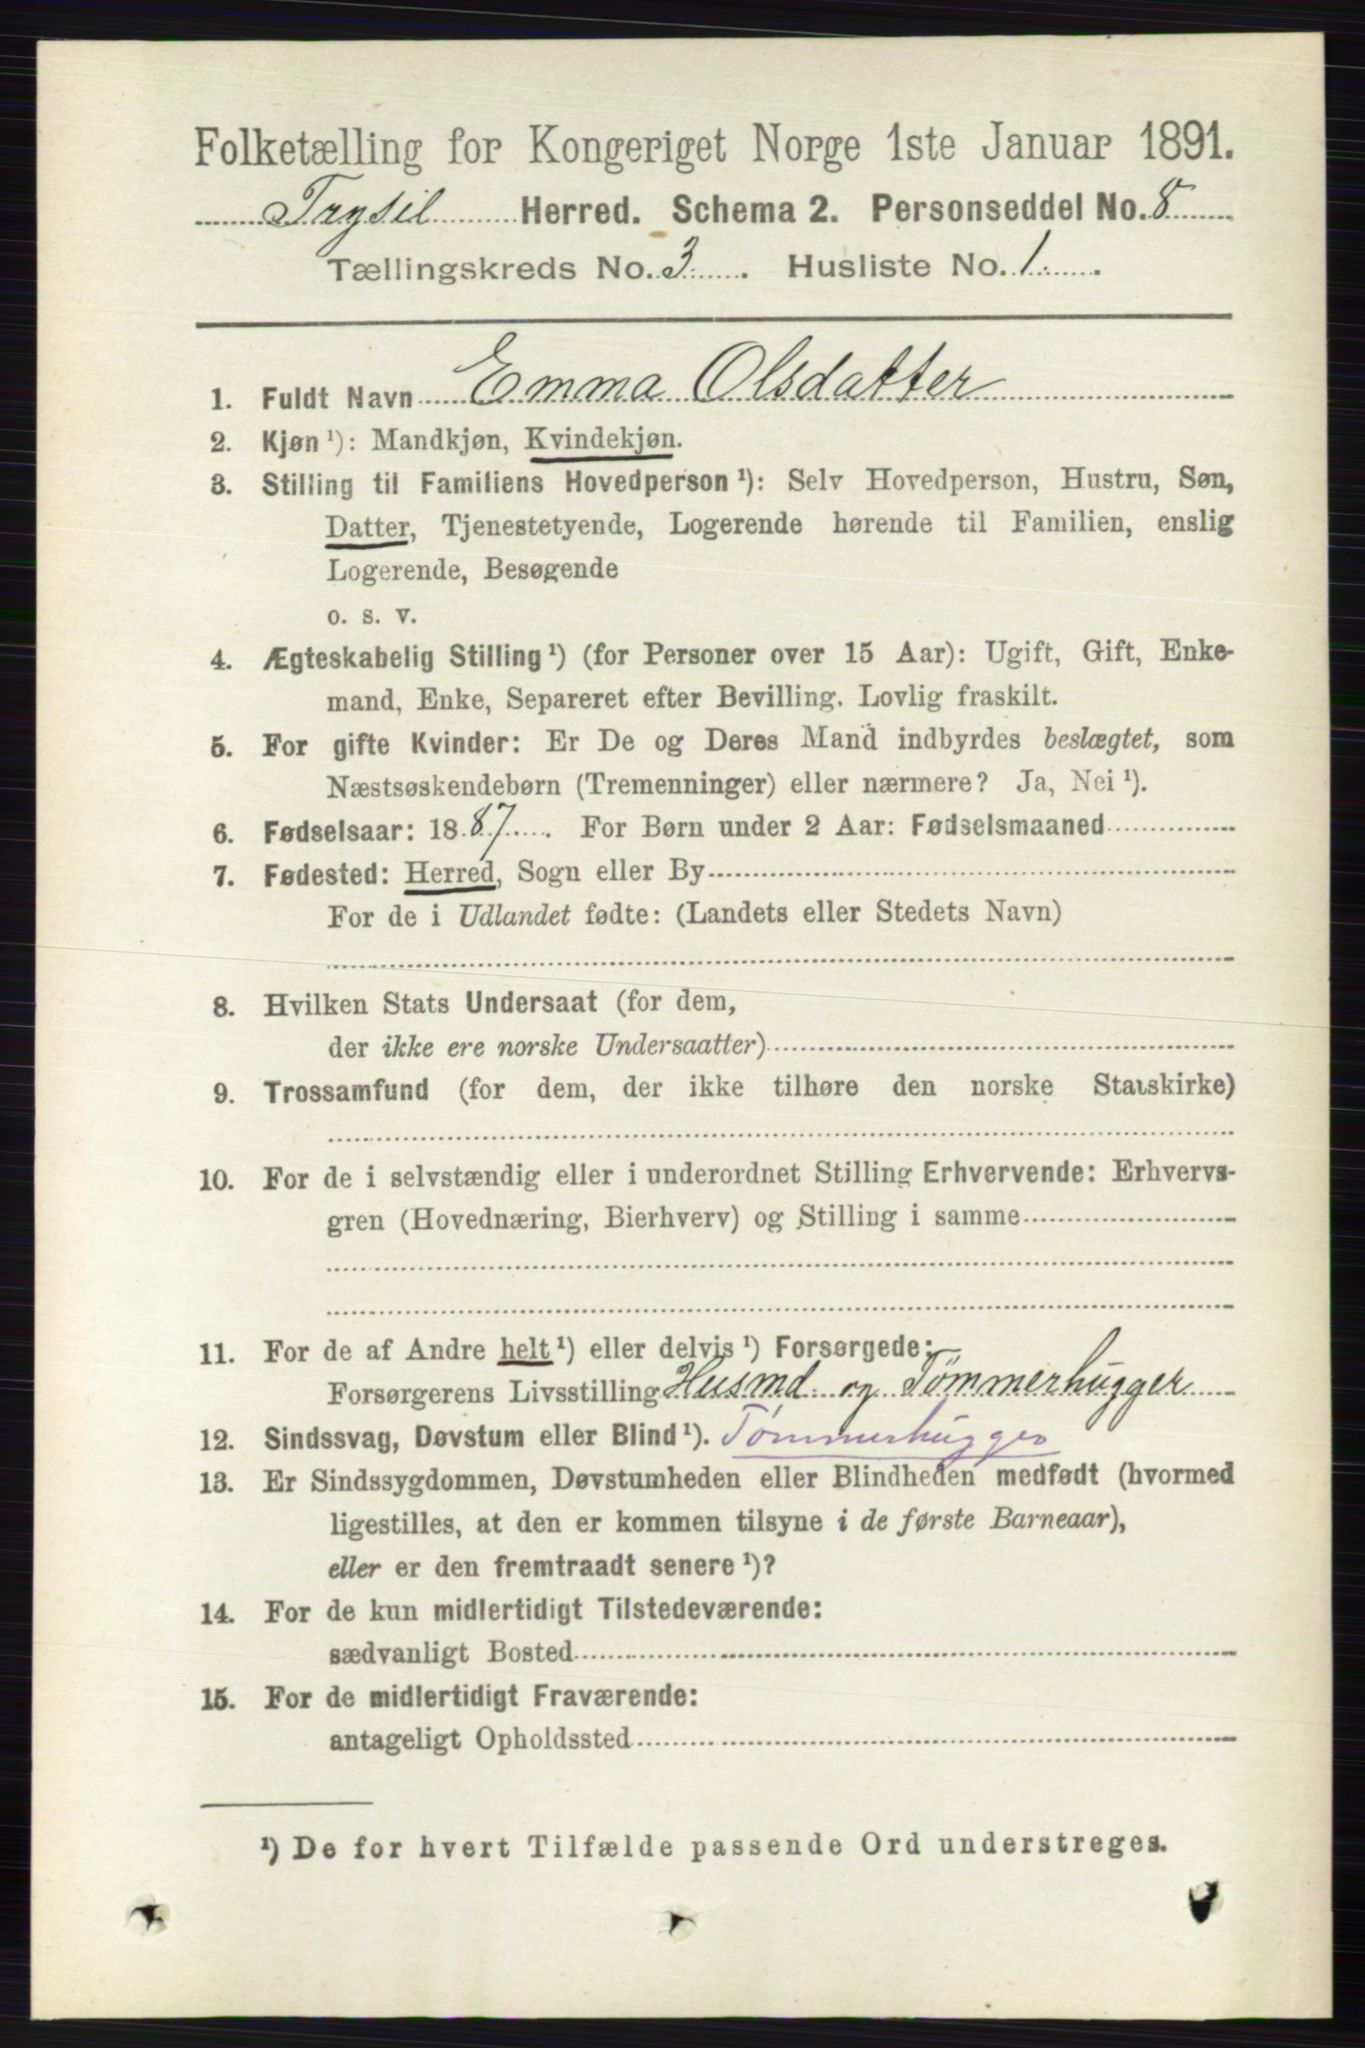 Folketælling for Kongeriget Norge 1ste Januar 1891.
Trysil Herred. Schema 2. Personseddel No. 8
Tællingskreds No. 3. Husliste No. 1.
1. Fuldt Navn Emma Olsdatter
2. Kjøn ¹): Mandkjøn, Kvindekjøn.
3. Stilling til Familiens Hovedperson ¹): Selv Hovedperson, Hustru, Søn,
Datter, Tjenestetyende, Logerende hørende til Familien, enslig
Logerende, Besøgende
o. s. v.
4. Ægteskabelig Stilling ¹) (for Personer over 15 Aar): Ugift, Gift, Enke-
mand, Enke, Separeret efter Bevilling. Lovlig fraskilt.
5. For gifte Kvinder: Er De og Deres Mand indbyrdes beslægtet, som
Næstsøskendebørn (Tremenninger) eller nærmere? Ja, Nei ¹).
6. Fødselsaar: 1887. For Børn under 2 Aar: Fødselsmaaned
7. Fødested: Herred, Sogn eller By
For de i Udlandet fødte: (Landets eller Stedets Navn)
8. Hvilken Stats Undersaat (for dem,
der ikke ere norske Undersaatter)
9. Trossamfund (for dem, der ikke tilhøre den norske Statskirke)
10. For de i selvstændig eller i underordnet Stilling Erhvervende: Erhvervs-
gren (Hovednæring, Bierhverv) og Stilling i samme
11. For de af Andre helt ¹) eller delvis ¹) Forsørgede:
Forsørgerens Livsstilling Husmd og Tømmerhugger
12. Sindssvag, Døvstum eller Blind ¹). Tømmerhugger
13. Er Sindssygdommen, Døvstumheden eller Blindheden medfødt (hvormed
ligestilles, at den er kommen tilsyne i de første Barneaar),
eller er den fremtraadt senere ¹)?
14. For de kun midlertidigt Tilstedeværende:
sædvanligt Bosted
15. For de midlertidigt Fraværende:
antageligt Opholdssted
¹) De for hvert Tilfælde passende Ord understreges.